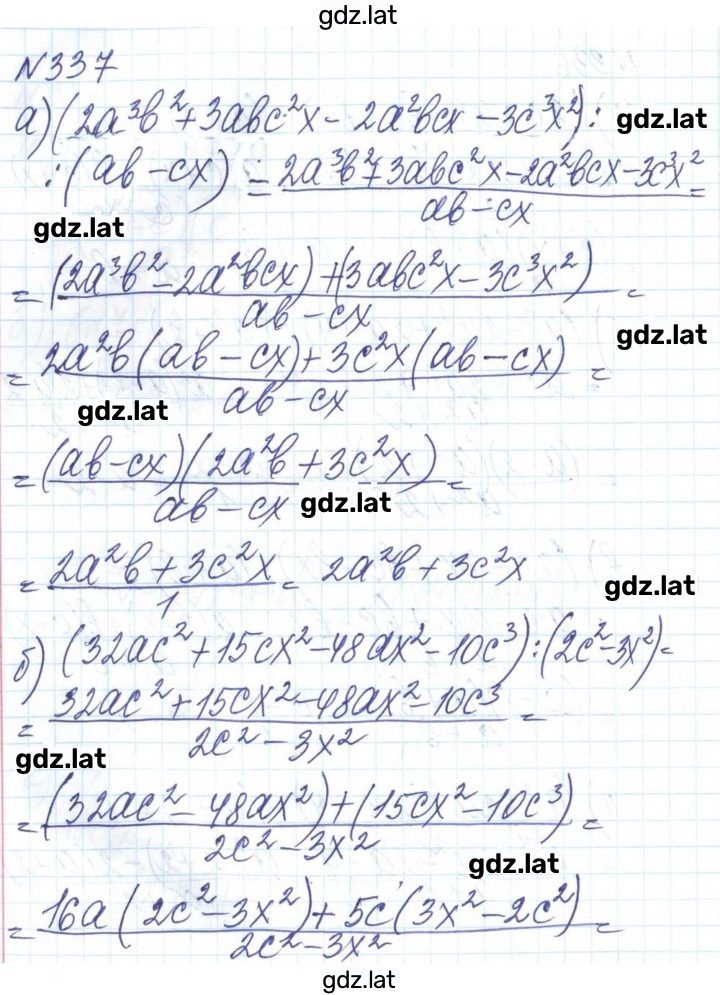 gdz.lat
N337
а) (2a³b² + 3abc²x - 2a²bcx - 3c³x²) : gdz.lat
: (ab - cx) = 2a³b² + 3abc²x - 2a²bcx - 3c³x² =
ab - cx
gdz.lat
= (2a³b² - 2a²bcx) + (3abc²x - 3c³x²) =
ab - cx
gdz.lat
= 2a²b(ab - cx) + 3c²x(ab - cx) =
ab - cx
gdz.lat
= (ab - cx)(2a²b + 3c²x) =
ab - cx gdz.lat
= 2a²b + 3c²x = 2a²b + 3c²x
1
gdz.lat
б) (32ac² + 15cx² - 48ax² - 10c³) : (2c² - 3x²) =
= 32ac² + 15cx² - 48ax² - 10c³ =
2c² - 3x²
gdz.lat
= (32ac² - 48ax²) + (15cx² - 10c³) =
2c² - 3x²
gdz.lat
= 16a(2c² - 3x²) + 5c(3x² - 2c²) =
2c² - 3x²
gdz.lat